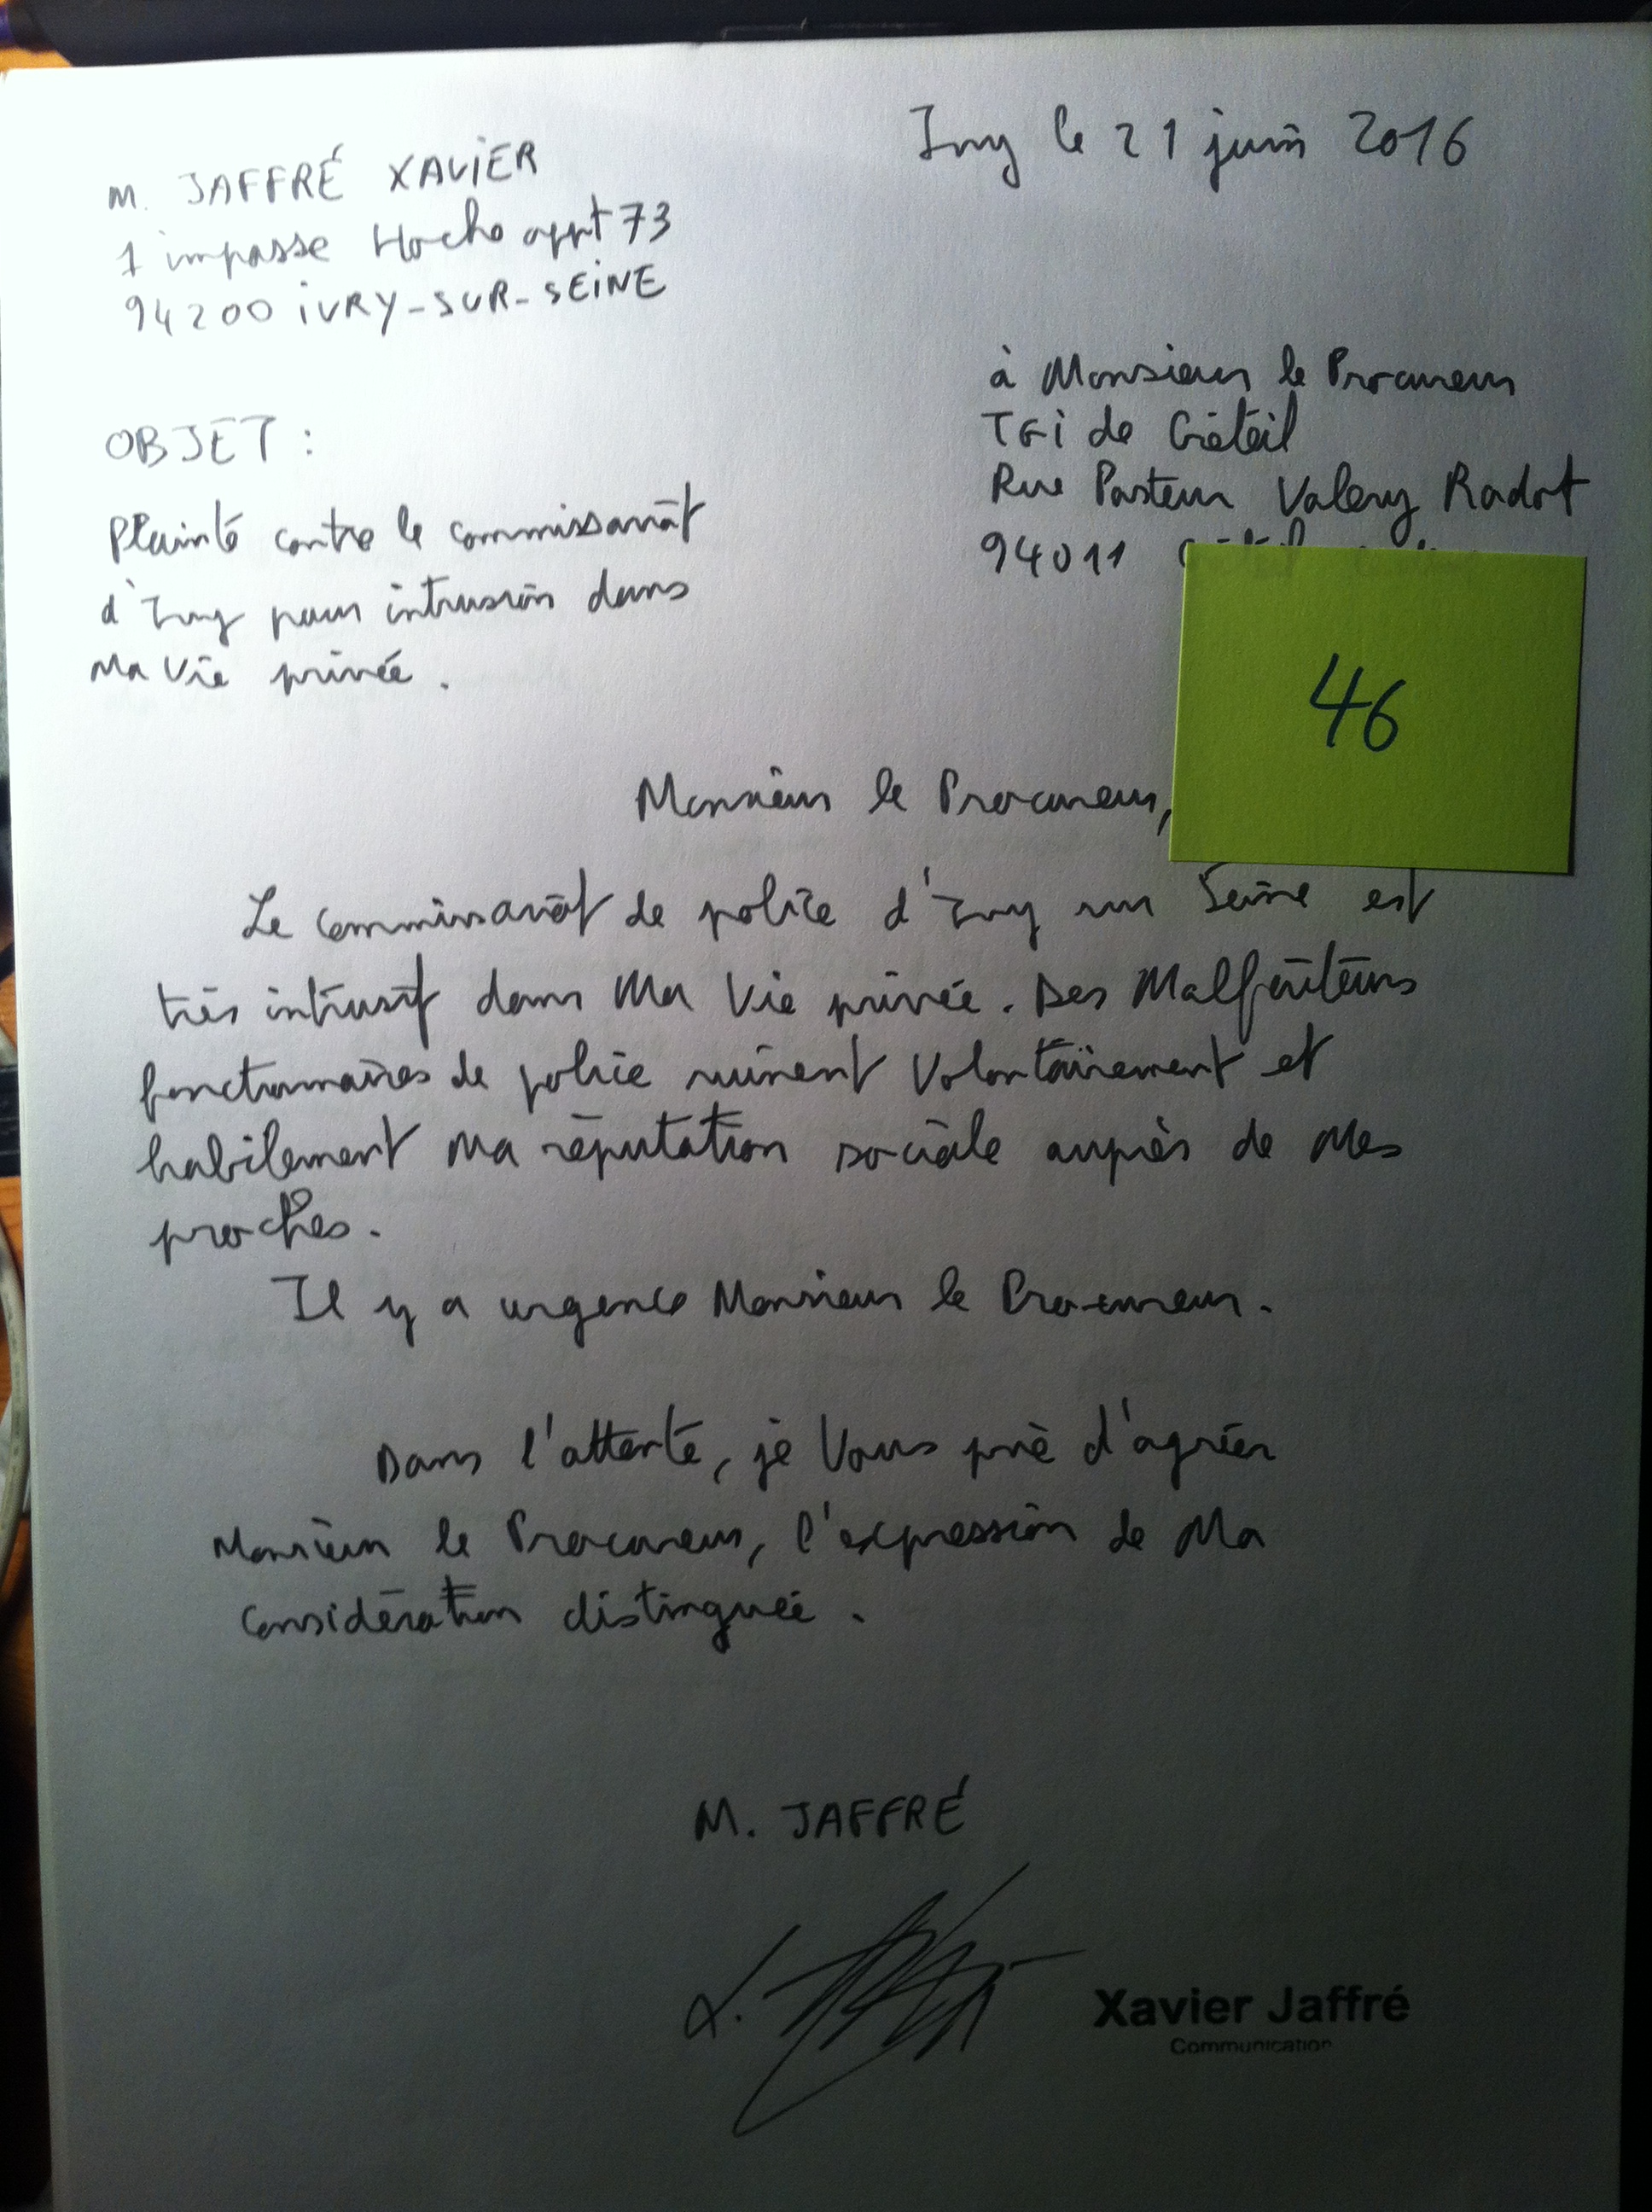 Ivry le 21 juin 2016
M. JAFFRÉ XAVIER
1 impasse Hoche appt 73
94200 IVRY-SUR-SEINE
à Monsieur le Procureur
TGI de Créteil
Rue Pasteur Valery Radot
94011
OBJET :
Plainte contre le commissariat
d'Ivry pour intrusion dans
Ma Vie privée.
46
Monsieur le Procureur,
Le commissariat de police d'Ivry sur Seine est
très intrusif dans Ma Vie privée. Des Malfaiteurs
fonctionnaires de police ruinent Volontairement et
habilement Ma réputation sociale auprès de Mes
proches.
Il y a urgence Monsieur le Procureur.
Dans l'attente, je Vous prie d'agréer
Monsieur le Procureur, l'expression de Ma
Considération distinguée.
M. JAFFRÉ
Xavier Jaffré
Communication